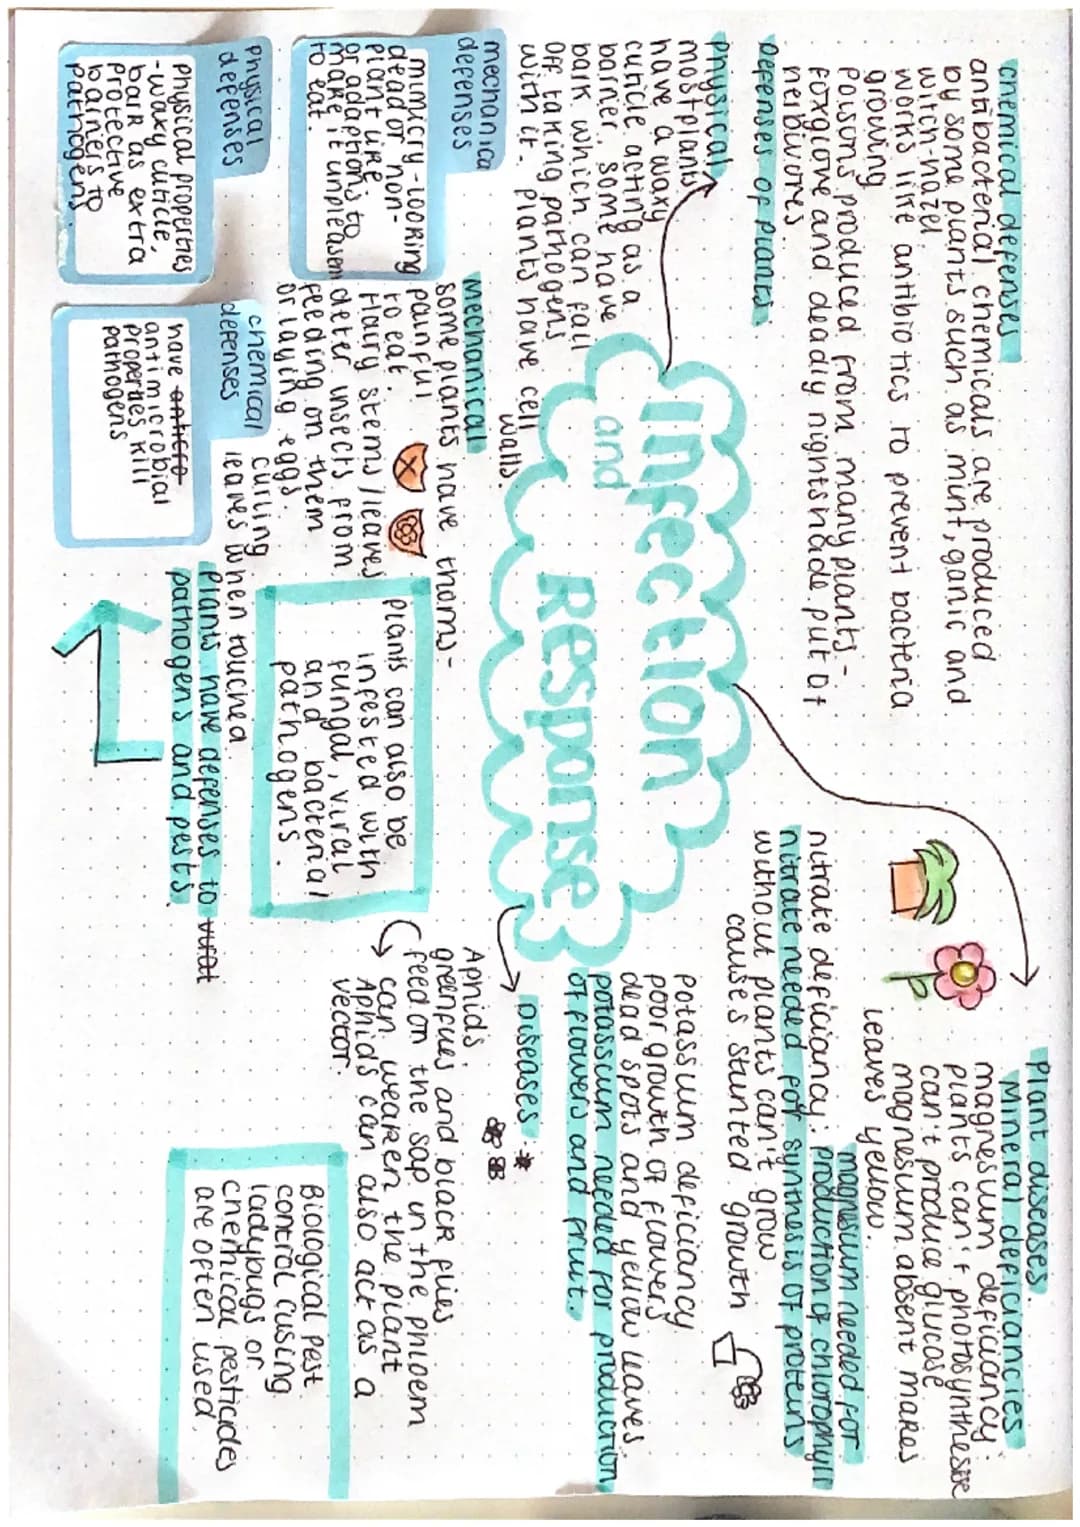 Infection
and
Response
chemical defenses
antibacterial chemicals are produced
by some plants such as mint, garlic and
witch-hazel
works like antibiotics to prevent bacteria
growing
Poisons produced from many plants -
foxglove and deadly nightshade put of
herbivores.
Defenses of plants.
physical
most plants
have a waxy
cuticle acting as a
barrier. some have
bark which can fall
off taking pathogens
with it. plants have cell
walls.
mechanical
some plants have thorns -
painful
to eat.
Hairy stems/leaves
deter insects from
feeding on them
or laying eggs.
curling
leaves when touched
mechanica
defenses
mimicry-looking
dead or non-
plant like.
or adaptions to
make it unpleasen
to eat.
physical
defenses
physical properties
-waxy cuticle,
bark as extra
protective
barriers to
pathogens
chemical
defenses
have antico
antimicrobial
properties kill
pathogens
plants have defenses to
pathogens and pests.
plants can also be
infested with
fungal, viral
and bacterial
pathogens.
Plant diseases.
Mineral deficiancies
magnesuim deficiancy:
plants can't photosynthesise
can't produce glucose
magnesuim absent makes
leaves yellow.
magnesuim needed for
production of chlorophyll
nitrate deficiancy:
nitrate needed for synthesis of proteins
without plants can't grow
cause's stunted growth
potassium deficiancy
poor growth of flowers
dead spots and yellow leaves.
potassium needed for production
of flowers and fruit.
Diseases
Aphids.
greenflies and black flies
feed on the sap in the phloem
can weaken the plant
Aphids can also act as a
vector.
Biological Pest
control (using
ladybugs or
chemical pesticides
are often used